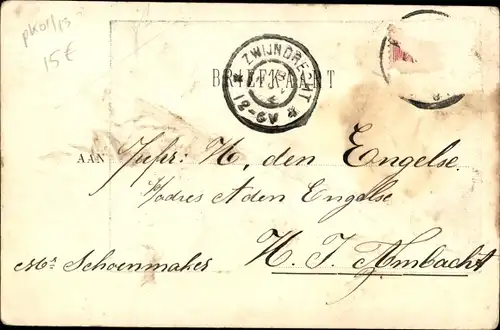 pkorl/ps
15€
ZWIJNDRECHT
12-6V
BRIEFKAART
AAN Jufr: H, den Engelse.
Adres A den Engelse
H. I. Ambacht
Mr Schoenmaker